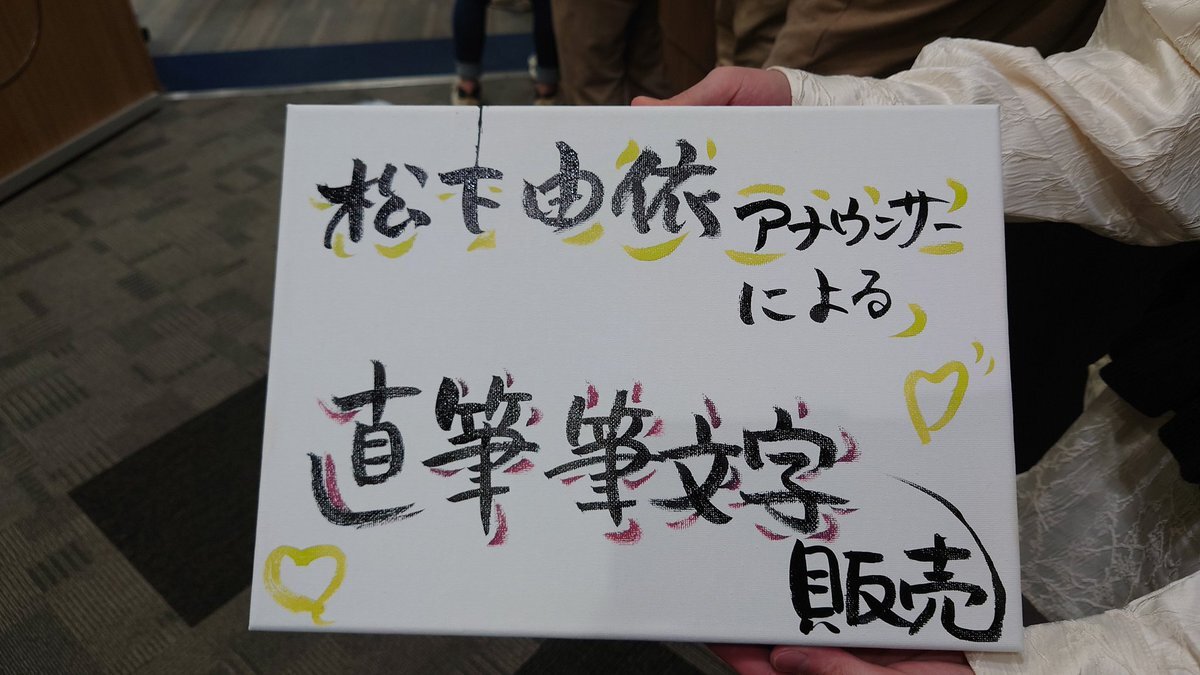 松下由依アナウンサー
による
直筆筆文字
販売